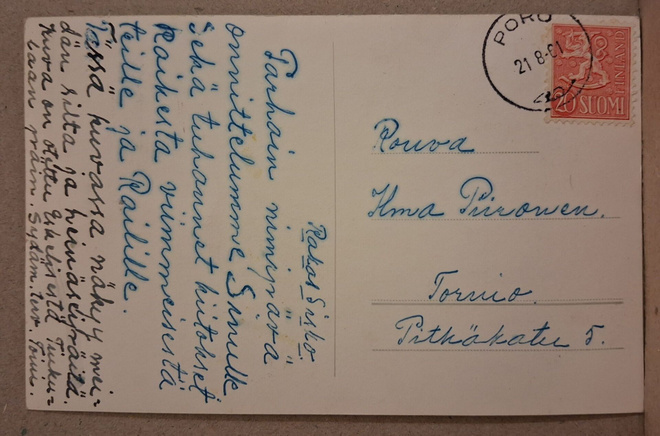 Rakas Sisko.
Parhain nimipäivä
onnittelumme Sinulle
sekä tuhannet kiitokset
Kaikesta viimmeisestä
teille ja Railille.
Tässä kuvassa näkyy mei=
dän silta ja
kuva on otettu
Sydäm. terv. Toini.
PORO
21.8-61
20 SUOMI
FINLAND
Rouva
Ilma Piironen.
Tornio.
Pitkäkatu 5.